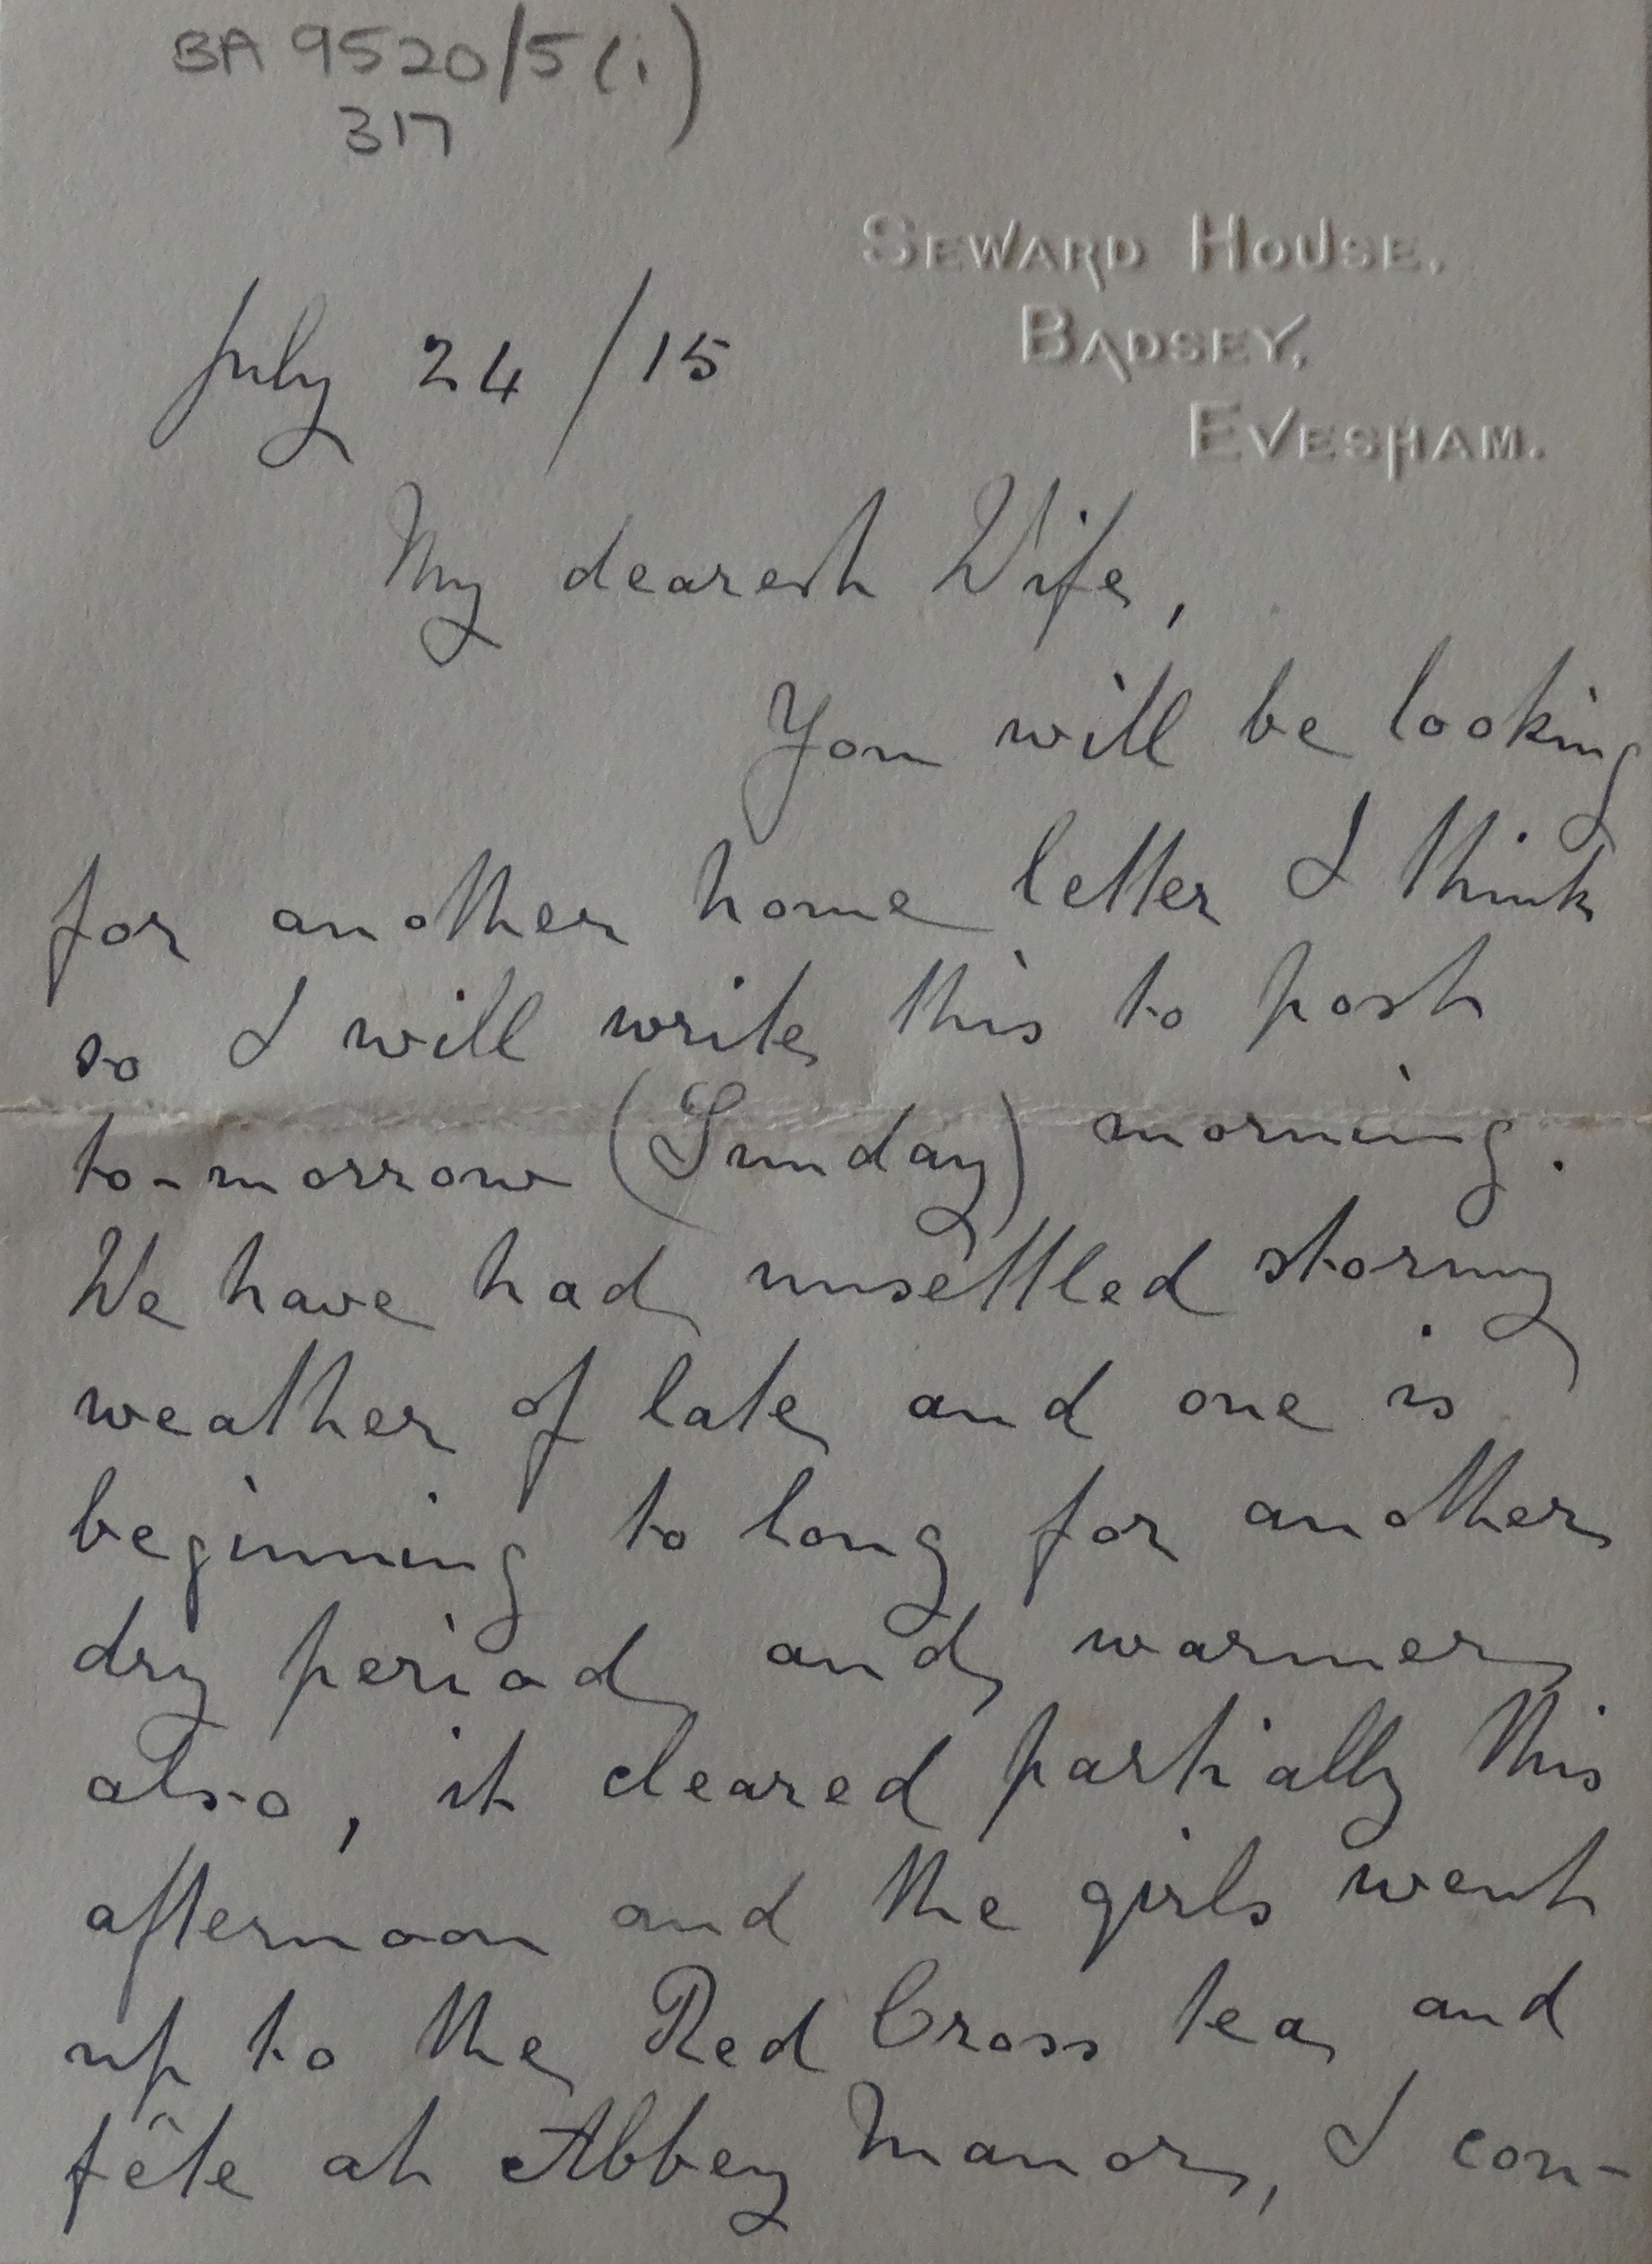 BA 9520/5(i)
317
SEWARD HOUSE,
BADSEY,
EVESHAM.
July 24/15
My dearest Wife,
You will be looking
for another home letter I think
so I will write this to post
to-morrow (Sunday) morning.
We have had unsettled stormy
weather of late and one is
beginning to long for another
dry period and warmer
also, it cleared partially this
afternoon and the girls went
up to the Red Cross tea and
fête at Abbey Manor, I con-